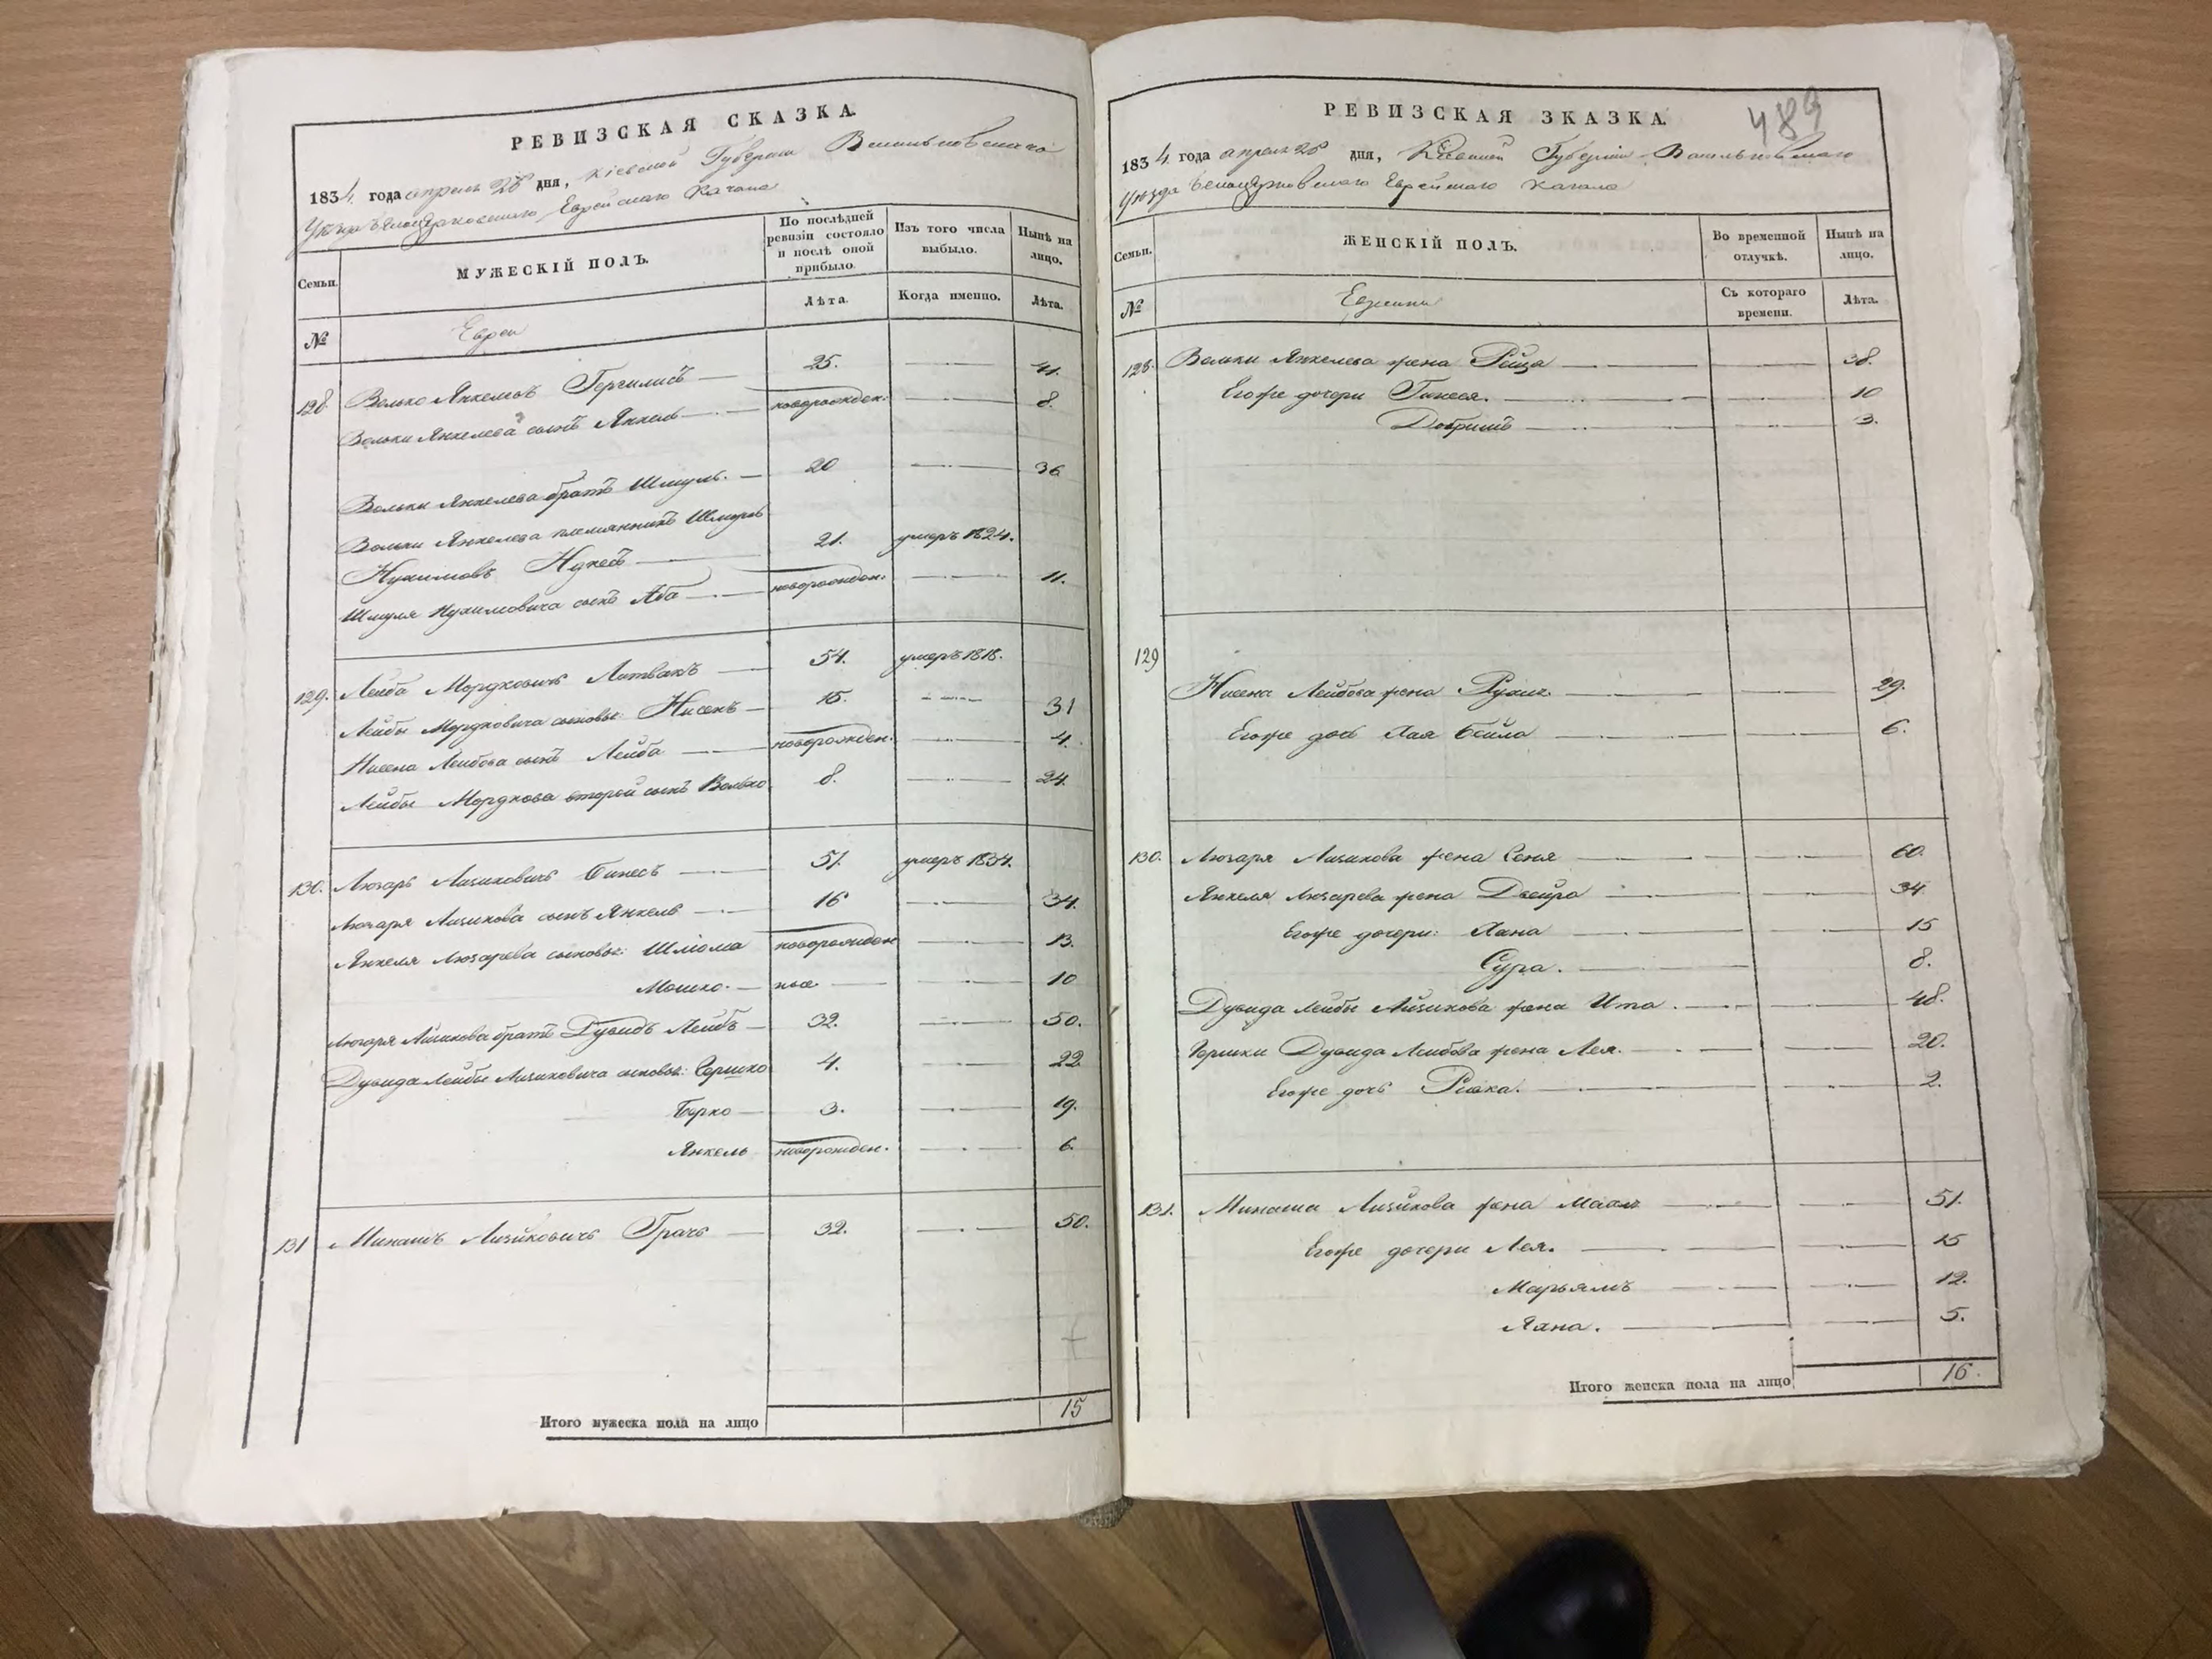 РЕВИЗСКАЯ СКАЗКА.
1834. года апреля 28 дня, Кіевской Губерніи Васильковскаго
Уезда Белоцерковскаго Еврейскаго Кагала
Семьи.
МУЖЕСКІЙ ПОЛЪ.
По послѣдней ревизіи состояло и послѣ оной прибыло.
Изъ того числа выбыло.
Нынѣ на лицо.
Лѣта.
Когда именно.
Лѣта.
№
Евреи
128 Волько Янкелевъ 25. 41.
Вольки Янкелева сынъ Янкель новорожден. 8.
Вольки Янкелева братъ Шмуль. 20 36
Вольки Янкелева племянникъ Шмуль
Нухимовъ 21. умеръ 1824.
Шмуля Нухимовича сынъ Аба новорожден. 11.
129. Лейба Мордковичъ Литвакъ 54. умеръ 1818.
Лейбы Мордковича сыновья: Нисенъ 15. 31
Нисена Лейбова сынъ Лейба новорожден. 4.
Лейбы Мордкова второй сынъ Волько 8. 24.
130. Лизаръ Айзиковичъ Бинесъ 51. умеръ 1834.
Лизаря Айзикова сынъ Янкель 16 34.
Янкеля Лизарева сыновья: Шлиома новорожден 13.
Мошко. ные 10
Лизаря Айзикова братъ Дувидъ Лейбъ 32. 50.
Дувида Лейбы Айзиковича сыновья: Гершко 4. 22
Берко 3. 19.
Янкель новорожден. 6.
131 Минашъ Айзиковичъ Грачъ 32. 50.
Итого мужеска пола на лицо 15
РЕВИЗСКАЯ ЗКАЗКА.
489
1834. года апреля 28 дня, Кіевской Губерніи Васильковскаго
Уезда Белоцерковскаго Еврейскаго Кагала
Семьи.
ЖЕНСКІЙ ПОЛЪ.
Во временной отлучкѣ.
Нынѣ на лицо.
№
Съ котораго времени.
Лѣта.
128. Вольки Янкелева жена Рейза 38.
Егоже дочери Гинеся. 10
Добришъ 3.
129
Нисена Лейбова жена Рухля 29.
Егоже дочь Хая Бейла 6.
130. Лизаря Айзикова жена Сеня 60.
Янкеля Лизарева жена Двейра 34
Егоже дочери: Хана 15
Сура. 8.
Дувида Лейбы Айзикова жена Ита. 48.
Гершки Дувида Лейбова жена Лея. 20.
Егоже дочь Ривка. 2.
131. Минаша Айзикова жена 51.
Егоже дочери Лея. 15
Марьямъ 12.
Хана. 5.
Итого женска пола на лицо 16.